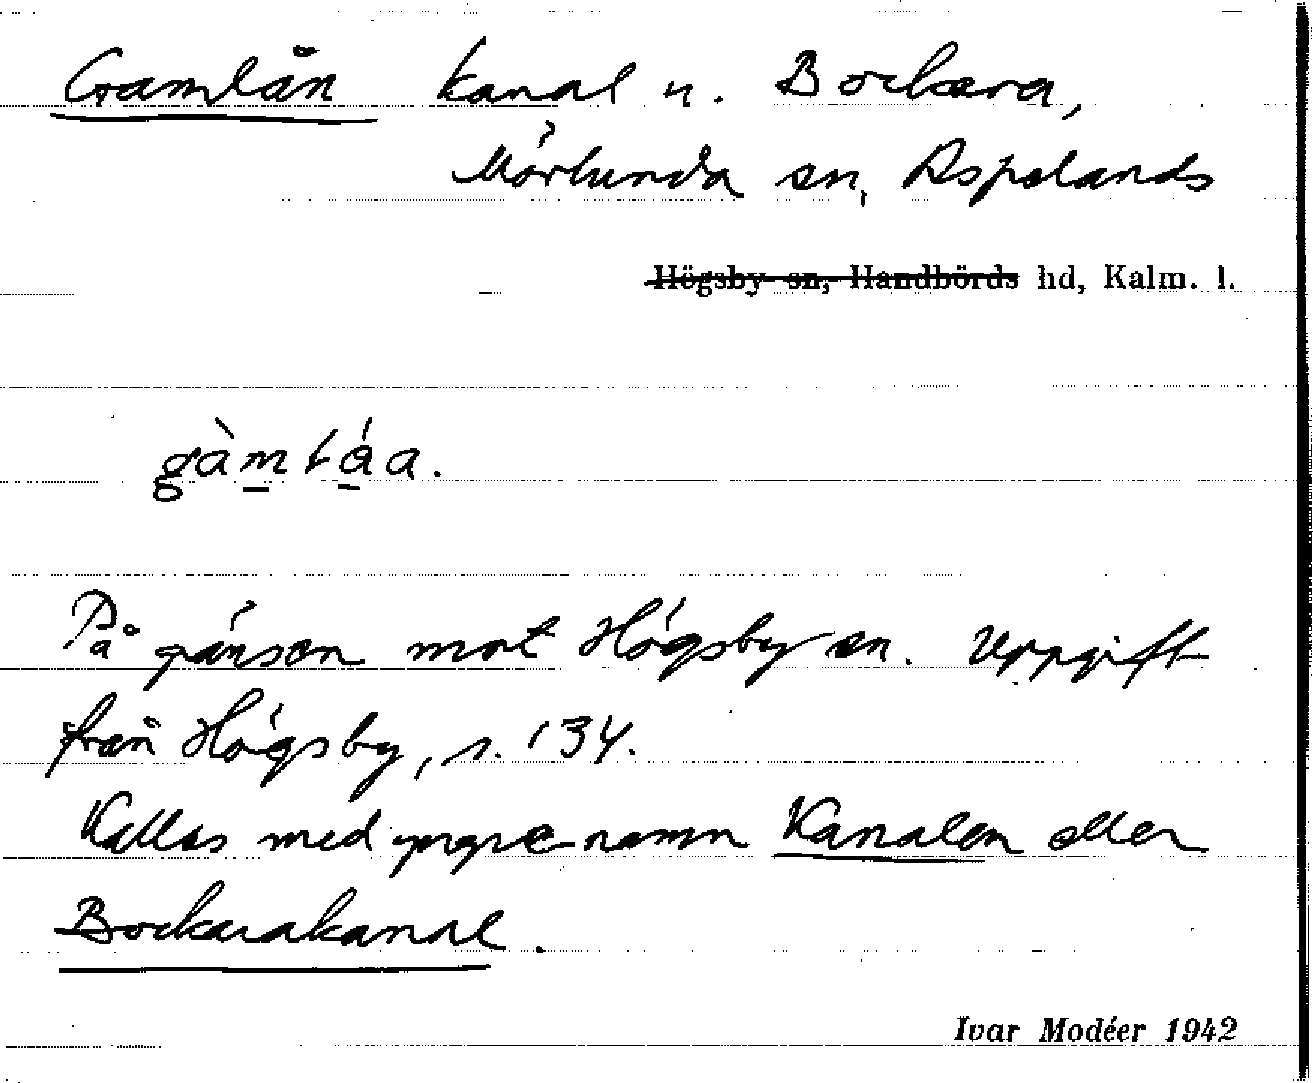 Gamlån kanal n. Bockara,
Mörlunda sn, Aspelands
Högsby sn, Handbörds hd, Kalm. l.
gàmláa.
På gränsen mot Högsby sn. Uppgift
från Högsby, s. 134.
Kallas med yngre namn Kanalen eller
Bockarakanal.
Ivar Modéer 1942